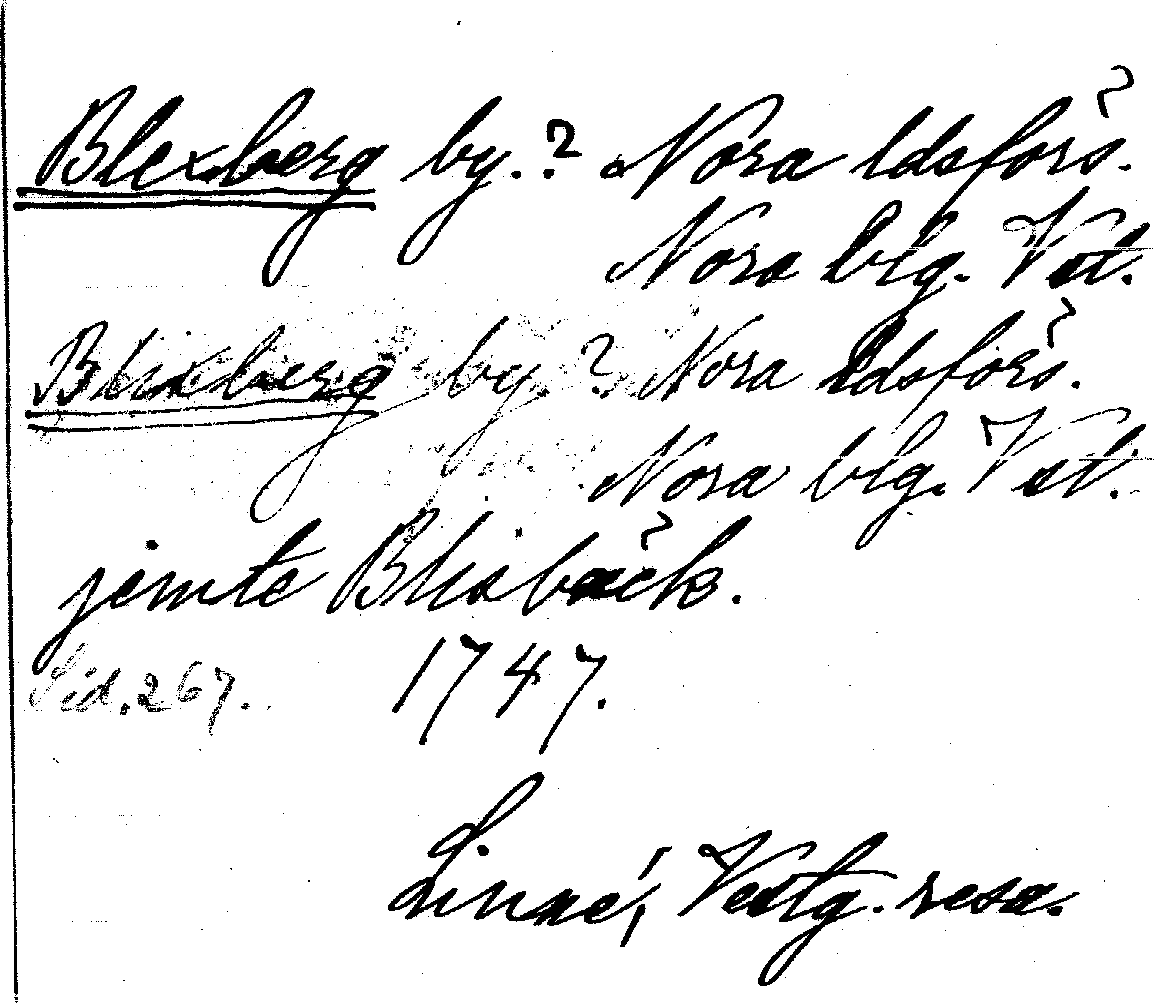 Blexberg by.? Nora ldsförs.
Nora blg. Vstl.
Blixberg by? Nora ldsförs.
Nora blg. Vstl.
jemte Blisbäck.
Sid. 267. 1747.
Linné, Vestg. resa.